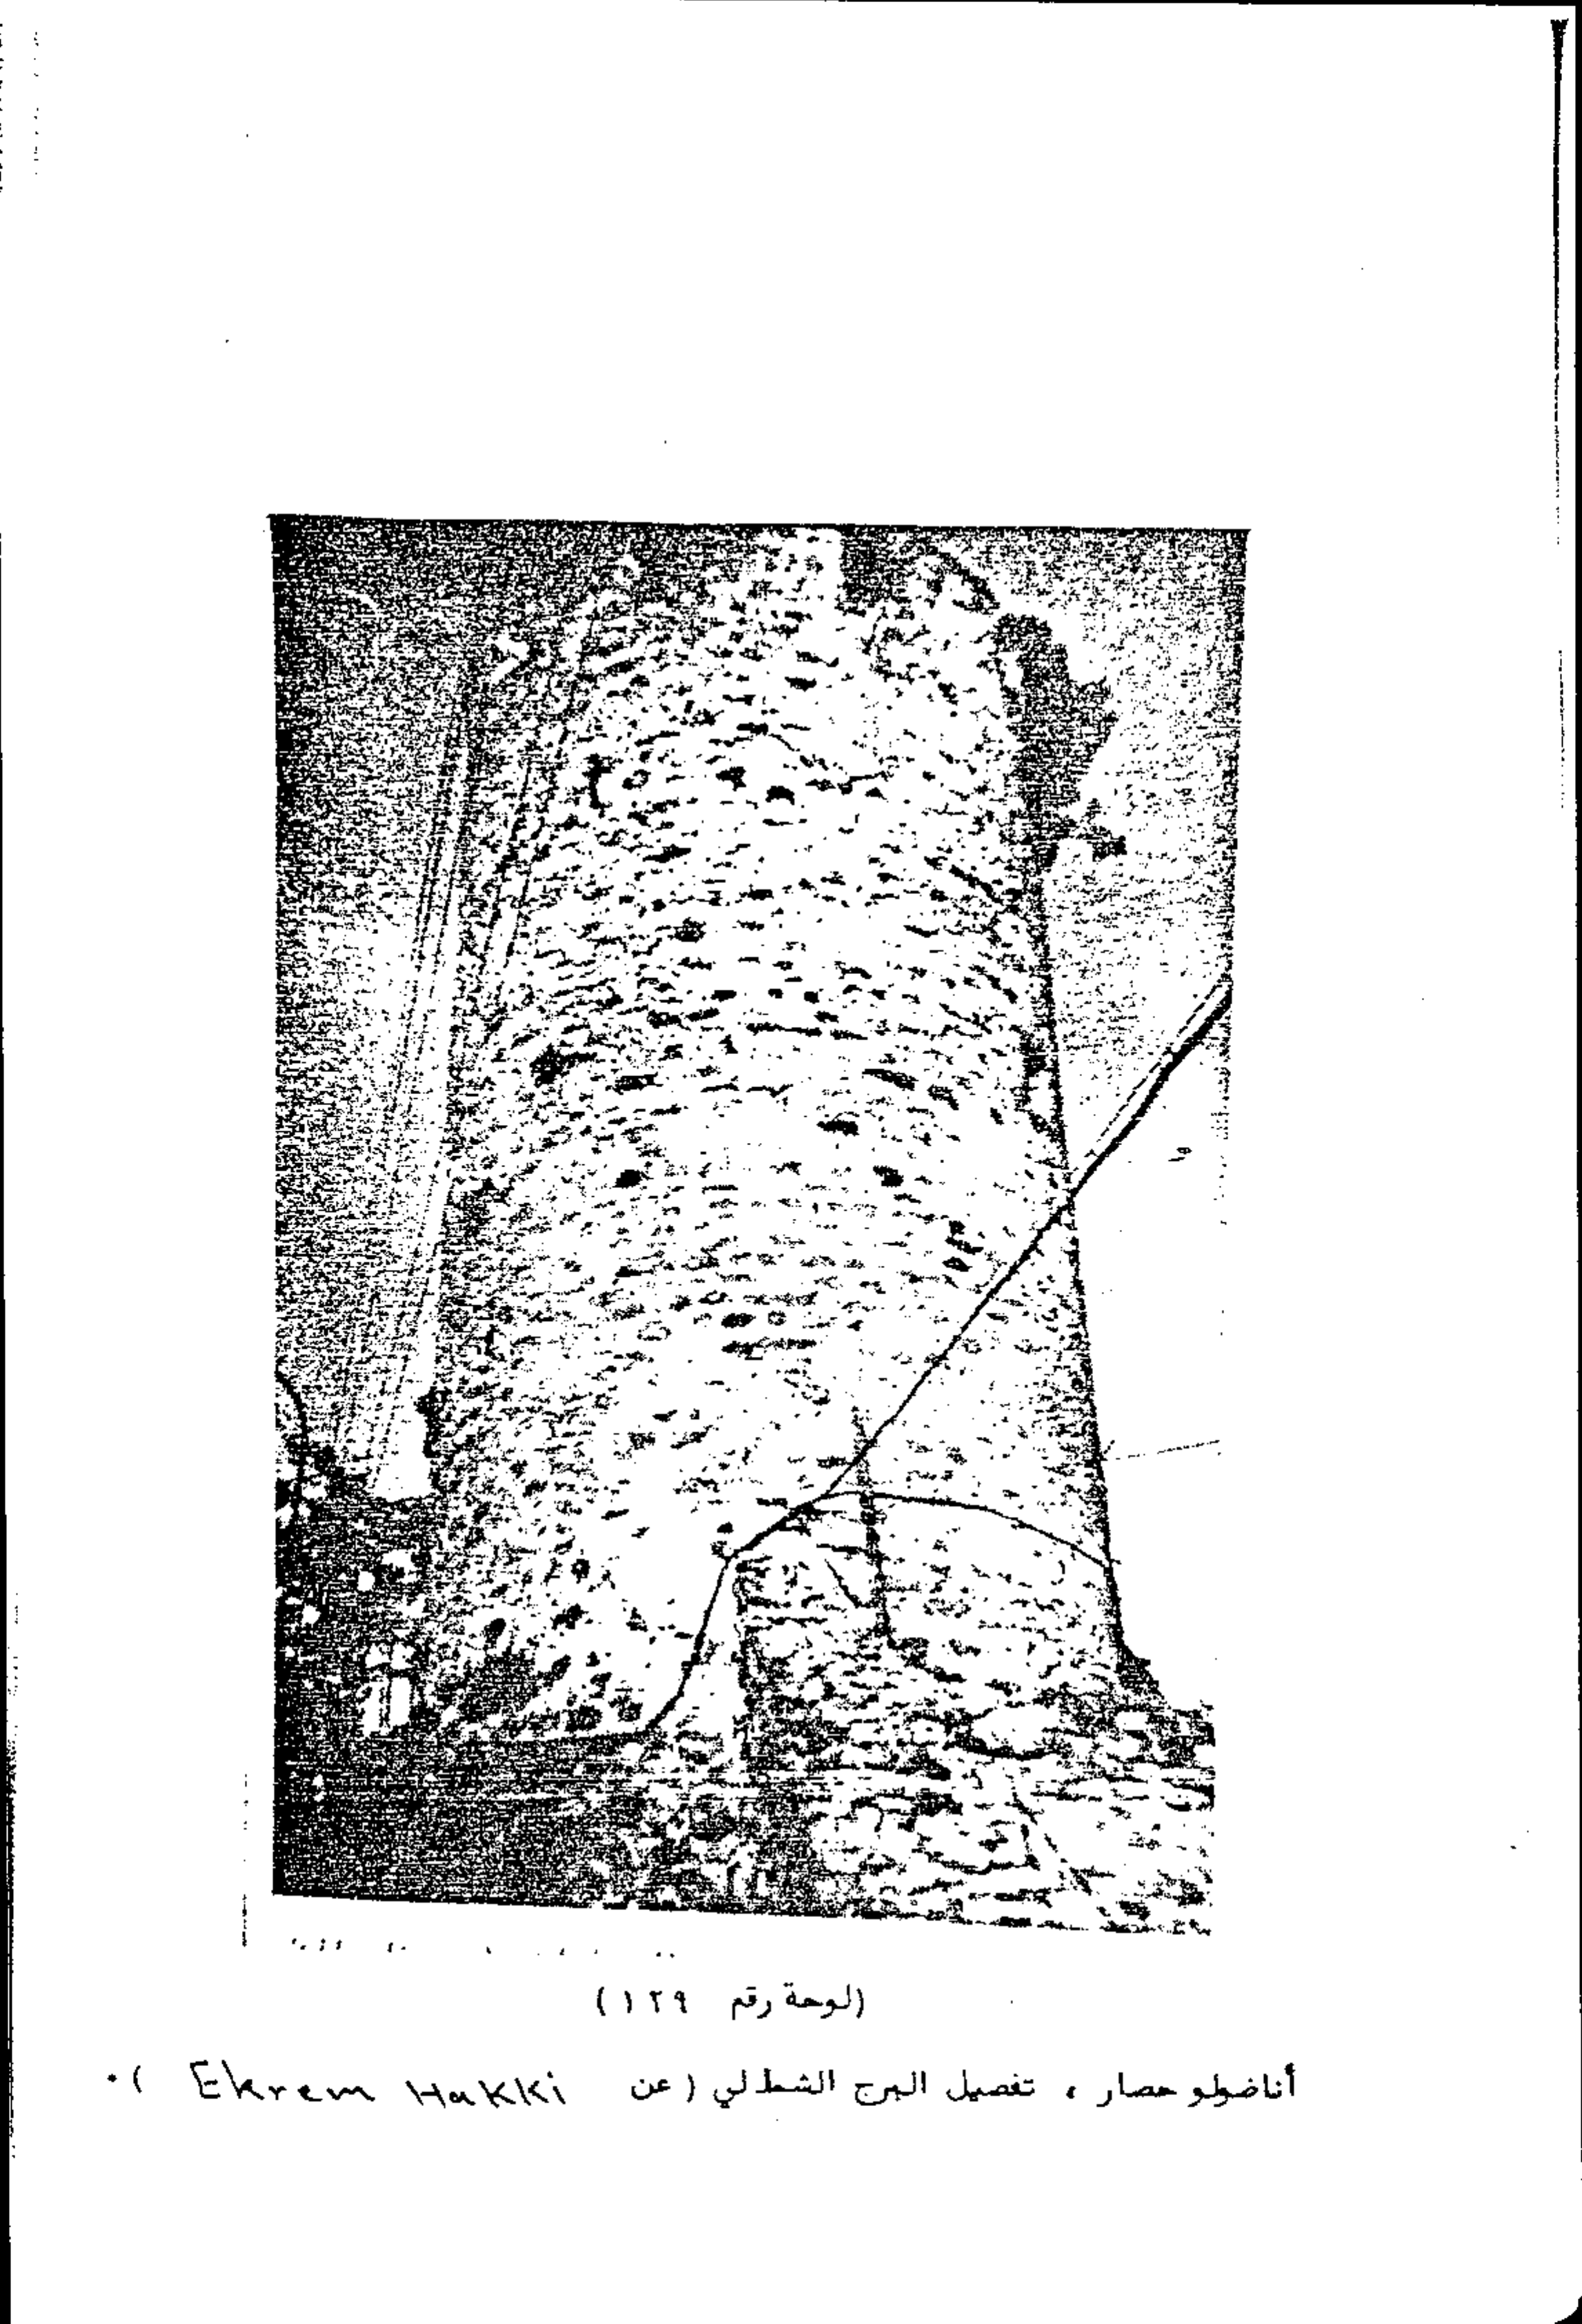 (لوحة رقم ١٢٩)
أناضولو حصار ، تفصيل البرج الشمالي (عن Ekrem Hakki ) .